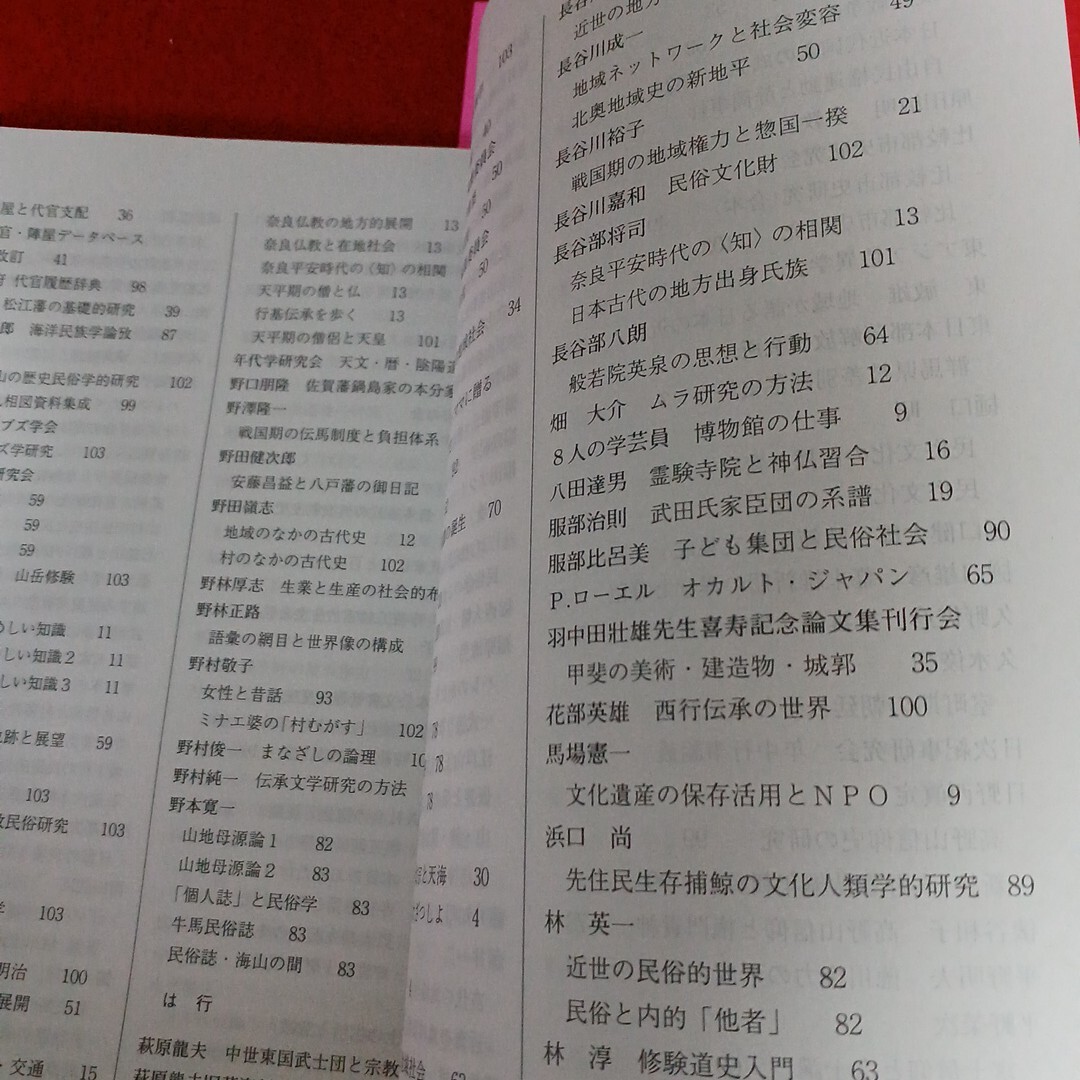 屋と代官支配 36
官・陣屋データベース
改訂 41
代官履歴辞典 98
松江藩の基礎的研究 39
郎 海洋民族学論攷 87
山の歴史民俗学的研究 102
人相図資料集成 99
ブズ学会
ズ学研究 103
研究会
59
59
59
山岳修験 103
めしい知識 11
しい知識2 11
しい知識3 11
跡と展望 59
103
民俗研究 103
学 103
明治 100
展開 51
・交通 15
奈良仏教の地方的展開 13
奈良仏教と在地社会 13
奈良平安時代の〈知〉の相関
天平期の僧と仏 13
行基伝承を歩く 13
天平期の僧侶と天皇 101
年代学研究会 天文・暦・陰陽道
野口朋隆 佐賀藩鍋島家の本分家
野澤隆一
戦国期の伝馬制度と負担体系
野田健次郎
安藤昌益と八戸藩の御日記
野田嶺志
地域のなかの古代史 12
村のなかの古代史 102
野林厚志 生業と生産の社会的布
野林正路
語彙の網目と世界像の構成
野村敬子
女性と昔話 93
ミナエ婆の「村むがす」 102
野村俊一 まなざしの論理 10
野村純一 伝承文学研究の方法
野本寛一
山地母源論1 82
山地母源論2 83
「個人誌」と民俗学 83
牛馬民俗誌 83
民俗誌・海山の間 83
は 行
萩原龍夫 中世東国武士団と宗教
103
40
50
50
50
社会 34
に贈る
誕生 70
78
78
と天海 30
だっしよ 4
社会 62
近世の地方
長谷川成一 49
地域ネットワークと社会変容
北奥地域史の新地平 50
長谷川裕子
戦国期の地域権力と惣国一揆 21
長谷川嘉和 民俗文化財 102
長谷部将司
奈良平安時代の〈知〉の相関 13
日本古代の地方出身氏族 101
長谷部八朗
般若院英泉の思想と行動 64
畑 大介 ムラ研究の方法 12
8人の学芸員 博物館の仕事 9
八田達男 霊験寺院と神仏習合 16
服部治則 武田氏家臣団の系譜 19
服部比呂美 子ども集団と民俗社会 90
P.ローエル オカルト・ジャパン 65
羽中田壯雄先生喜寿記念論文集刊行会
甲斐の美術・建造物・城郭 35
花部英雄 西行伝承の世界 100
馬場憲一
文化遺産の保存活用とNPO 9
浜口 尚
先住民生存捕鯨の文化人類学的研究 89
林 英一
近世の民俗的世界 82
民俗と内的「他者」 82
林 淳 修験道史入門 63